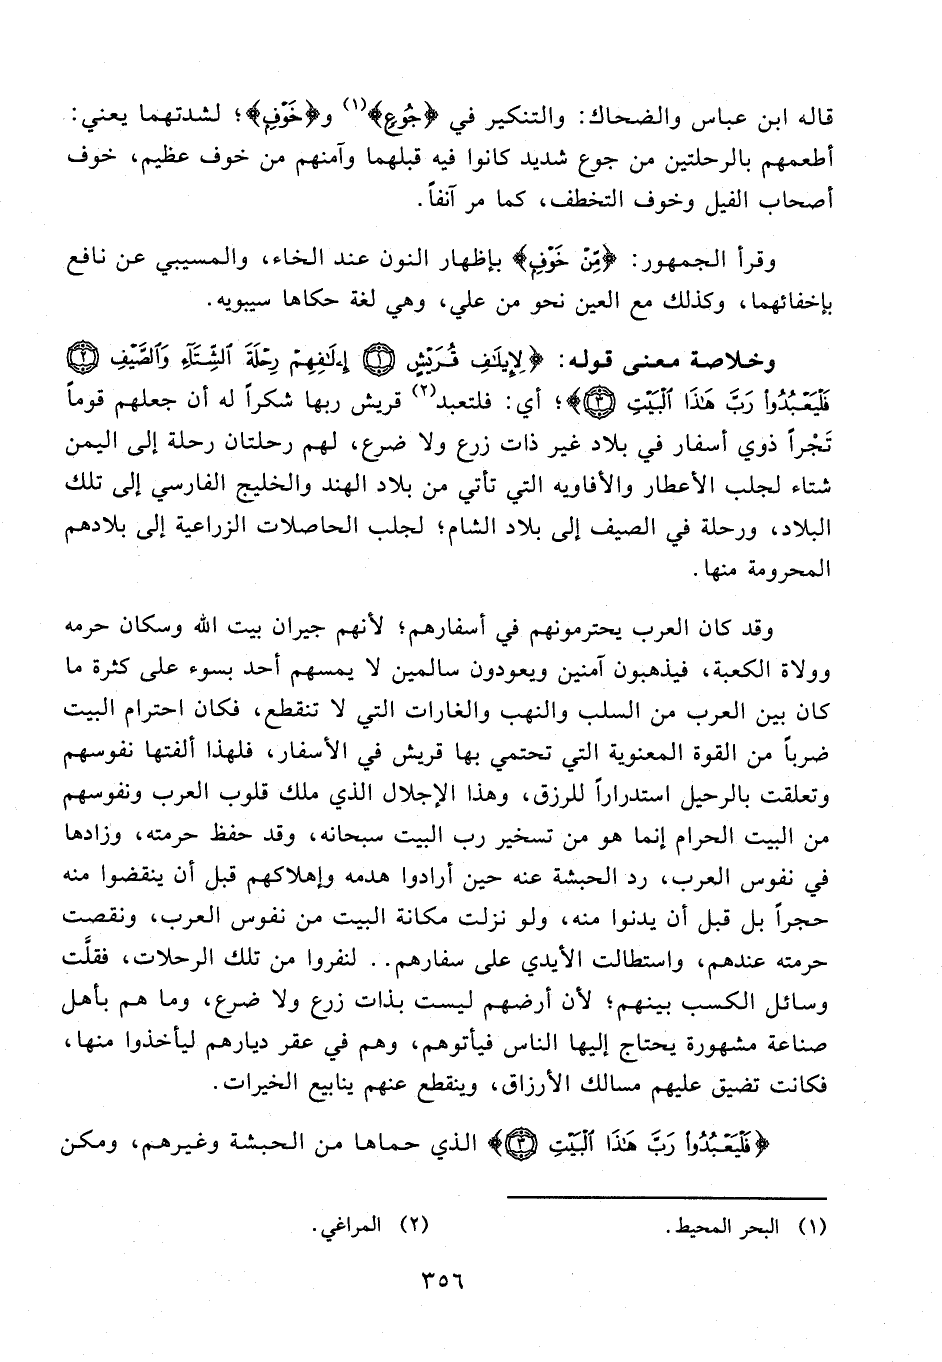 قاله ابن عباس والضحاك: والتنكير في ﴿جُوعٍ﴾(١) و﴿خَوْفٍ﴾؛ لشدتهما يعني:
أطعمهم بالرحلتين من جوع شديد كانوا فيه قبلهما وآمنهم من خوف عظيم، خوف
أصحاب الفيل وخوف التخطف، كما مر آنفاً.
وقرأ الجمهور: ﴿مِّنْ خَوْفٍ﴾ بإظهار النون عند الخاء، والمسيبي عن نافع
بإخفائهما، وكذلك مع العين نحو من علي، وهي لغة حكاها سيبويه.
وخلاصة معنى قوله: ﴿لِإِيلَٰفِ قُرَيْشٍ ١ إِۦلَٰفِهِمْ رِحْلَةَ ٱلشِّتَآءِ وَٱلصَّيْفِ ٢
فَلْيَعْبُدُوا۟ رَبَّ هَٰذَا ٱلْبَيْتِ ٣﴾؛ أي: فلتعبد(٢) قريش ربها شكراً له أن جعلهم قوماً
تَجْراً ذوي أسفار في بلاد غير ذات زرع ولا ضرع، لهم رحلتان رحلة إلى اليمن
شتاء لجلب الأعطار والأفاويه التي تأتي من بلاد الهند والخليج الفارسي إلى تلك
البلاد، ورحلة في الصيف إلى بلاد الشام؛ لجلب الحاصلات الزراعية إلى بلادهم
المحرومة منها.
وقد كان العرب يحترمونهم في أسفارهم؛ لأنهم جيران بيت الله وسكان حرمه
وولاة الكعبة، فيذهبون آمنين ويعودون سالمين لا يمسهم أحد بسوء على كثرة ما
كان بين العرب من السلب والنهب والغارات التي لا تنقطع، فكان احترام البيت
ضرباً من القوة المعنوية التي تحتمي بها قريش في الأسفار، فلهذا ألفتها نفوسهم
وتعلقت بالرحيل استدراراً للرزق، وهذا الإجلال الذي ملك قلوب العرب ونفوسهم
من البيت الحرام إنما هو من تسخير رب البيت سبحانه، وقد حفظ حرمته، وزادها
في نفوس العرب، رد الحبشة عنه حين أرادوا هدمه وإهلاكهم قبل أن ينقضوا منه
حجراً بل قبل أن يدنوا منه، ولو نزلت مكانة البيت من نفوس العرب، ونقصت
حرمته عندهم، واستطالت الأيدي على سفارهم.. لنفروا من تلك الرحلات، فقلَّت
وسائل الكسب بينهم؛ لأن أرضهم ليست بذات زرع ولا ضرع، وما هم بأهل
صناعة مشهورة يحتاج إليها الناس فيأتوهم، وهم في عقر ديارهم ليأخذوا منها،
فكانت تضيق عليهم مسالك الأرزاق، وينقطع عنهم ينابيع الخيرات.
﴿فَلْيَعْبُدُوا۟ رَبَّ هَٰذَا ٱلْبَيْتِ ٣﴾ الذي حماها من الحبشة وغيرهم، ومكن
(١) البحر المحيط. (٢) المراغي.
٣٥٦